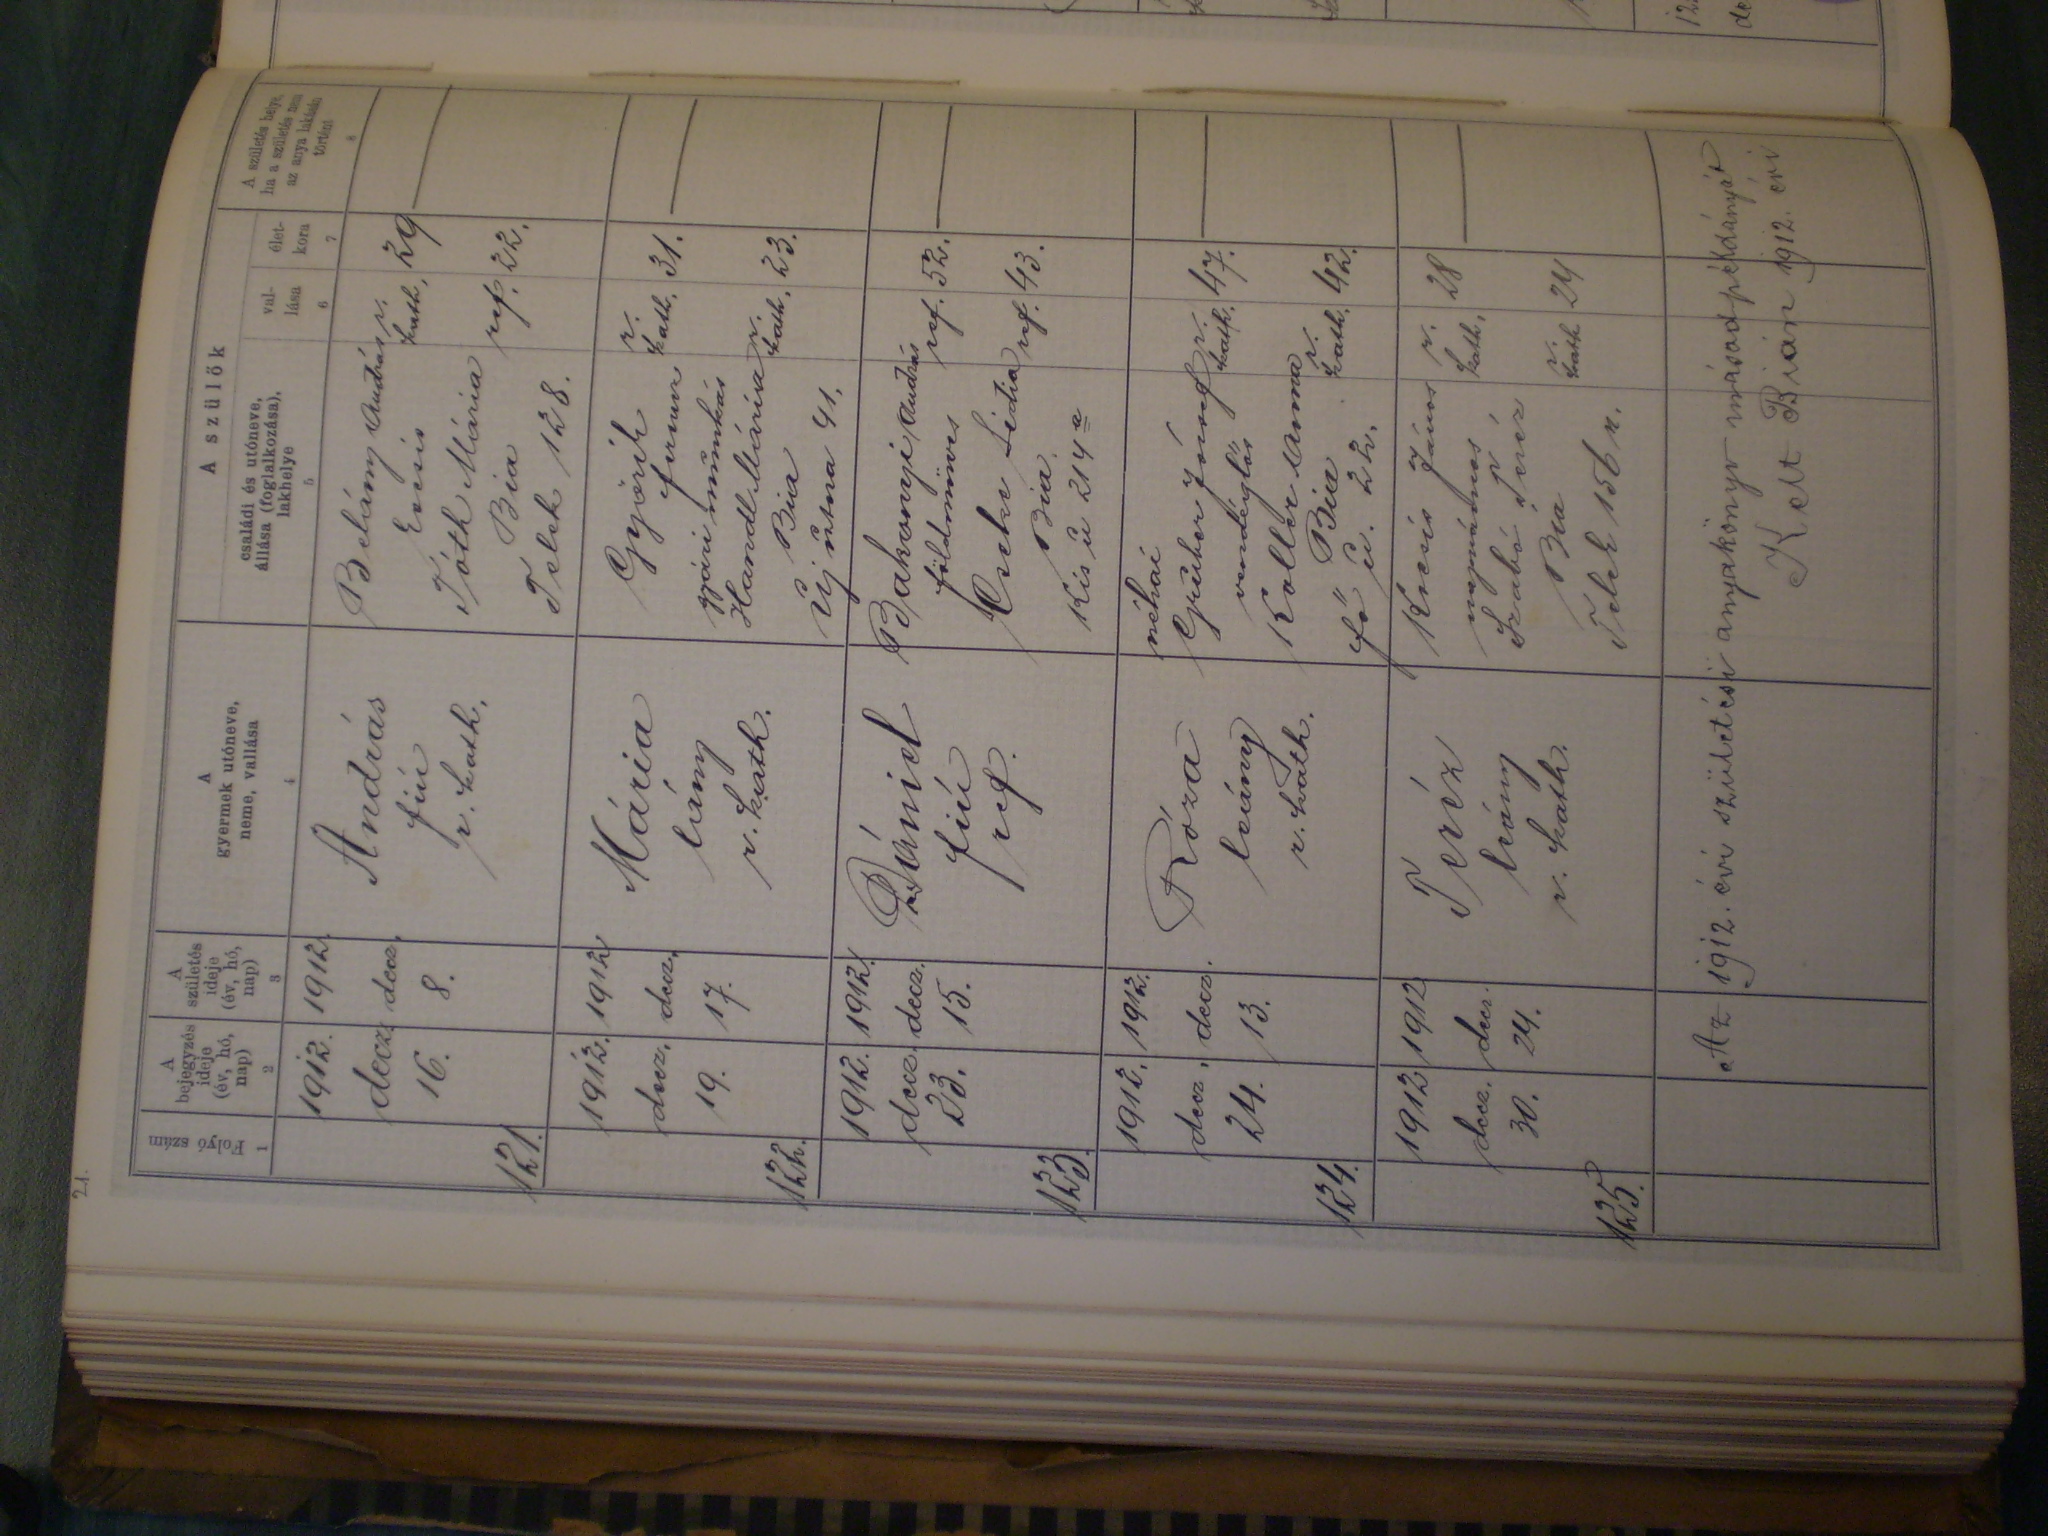 21.
Folyó szám
A bejegyzés ideje (év, hó, nap)
A születés ideje (év, hó, nap)
A gyermek utóneve, neme, vallása
A szülők
családi és utóneve, állása (foglalkozása), lakhelye
val-lása
élet-kora
A születés helye, ha a születés nem az anya lakásán történt
1
2
3
4
5
6
7
8
121.
1912. decz. 16.
1912. decz. 8.
András
fiú
r. kath.
Belány András r. kath. 29
Tóth Mária ref. 22.
Bia
Telek 128.
122.
1912. decz. 19.
1912 decz. 17.
Mária
leány
r. kath.
Győrik Ferencz r. kath. 31.
gyári munkás
Handl Mária r. kath. 23.
Bia
Új utcza 41.
123.
1912. decz. 23.
1912. decz. 15.
Dániel
fiú
ref.
Bakonyi András ref. 52.
földmüves
Cseke Lidia ref. 43.
Bia
Kis ú 214 a
124.
1912. decz. 24.
1912. decz. 13.
Róza
leány
r. kath.
néhai
Gruber József r. kath. 47.
vendéglős
Koller Anna r. kath. 42.
Bia
Fő ú. 22.
125.
1912 decz. 30.
1912 decz. 24.
Teréz
leány
r. kath.
János r. kath. 28
napszámos
Szabó Teréz r. kath 24
Bia
Telek 156 n.
Az 1912. évi születési anyakönyv másodpéldányát
Kelt Bián 1912. évi